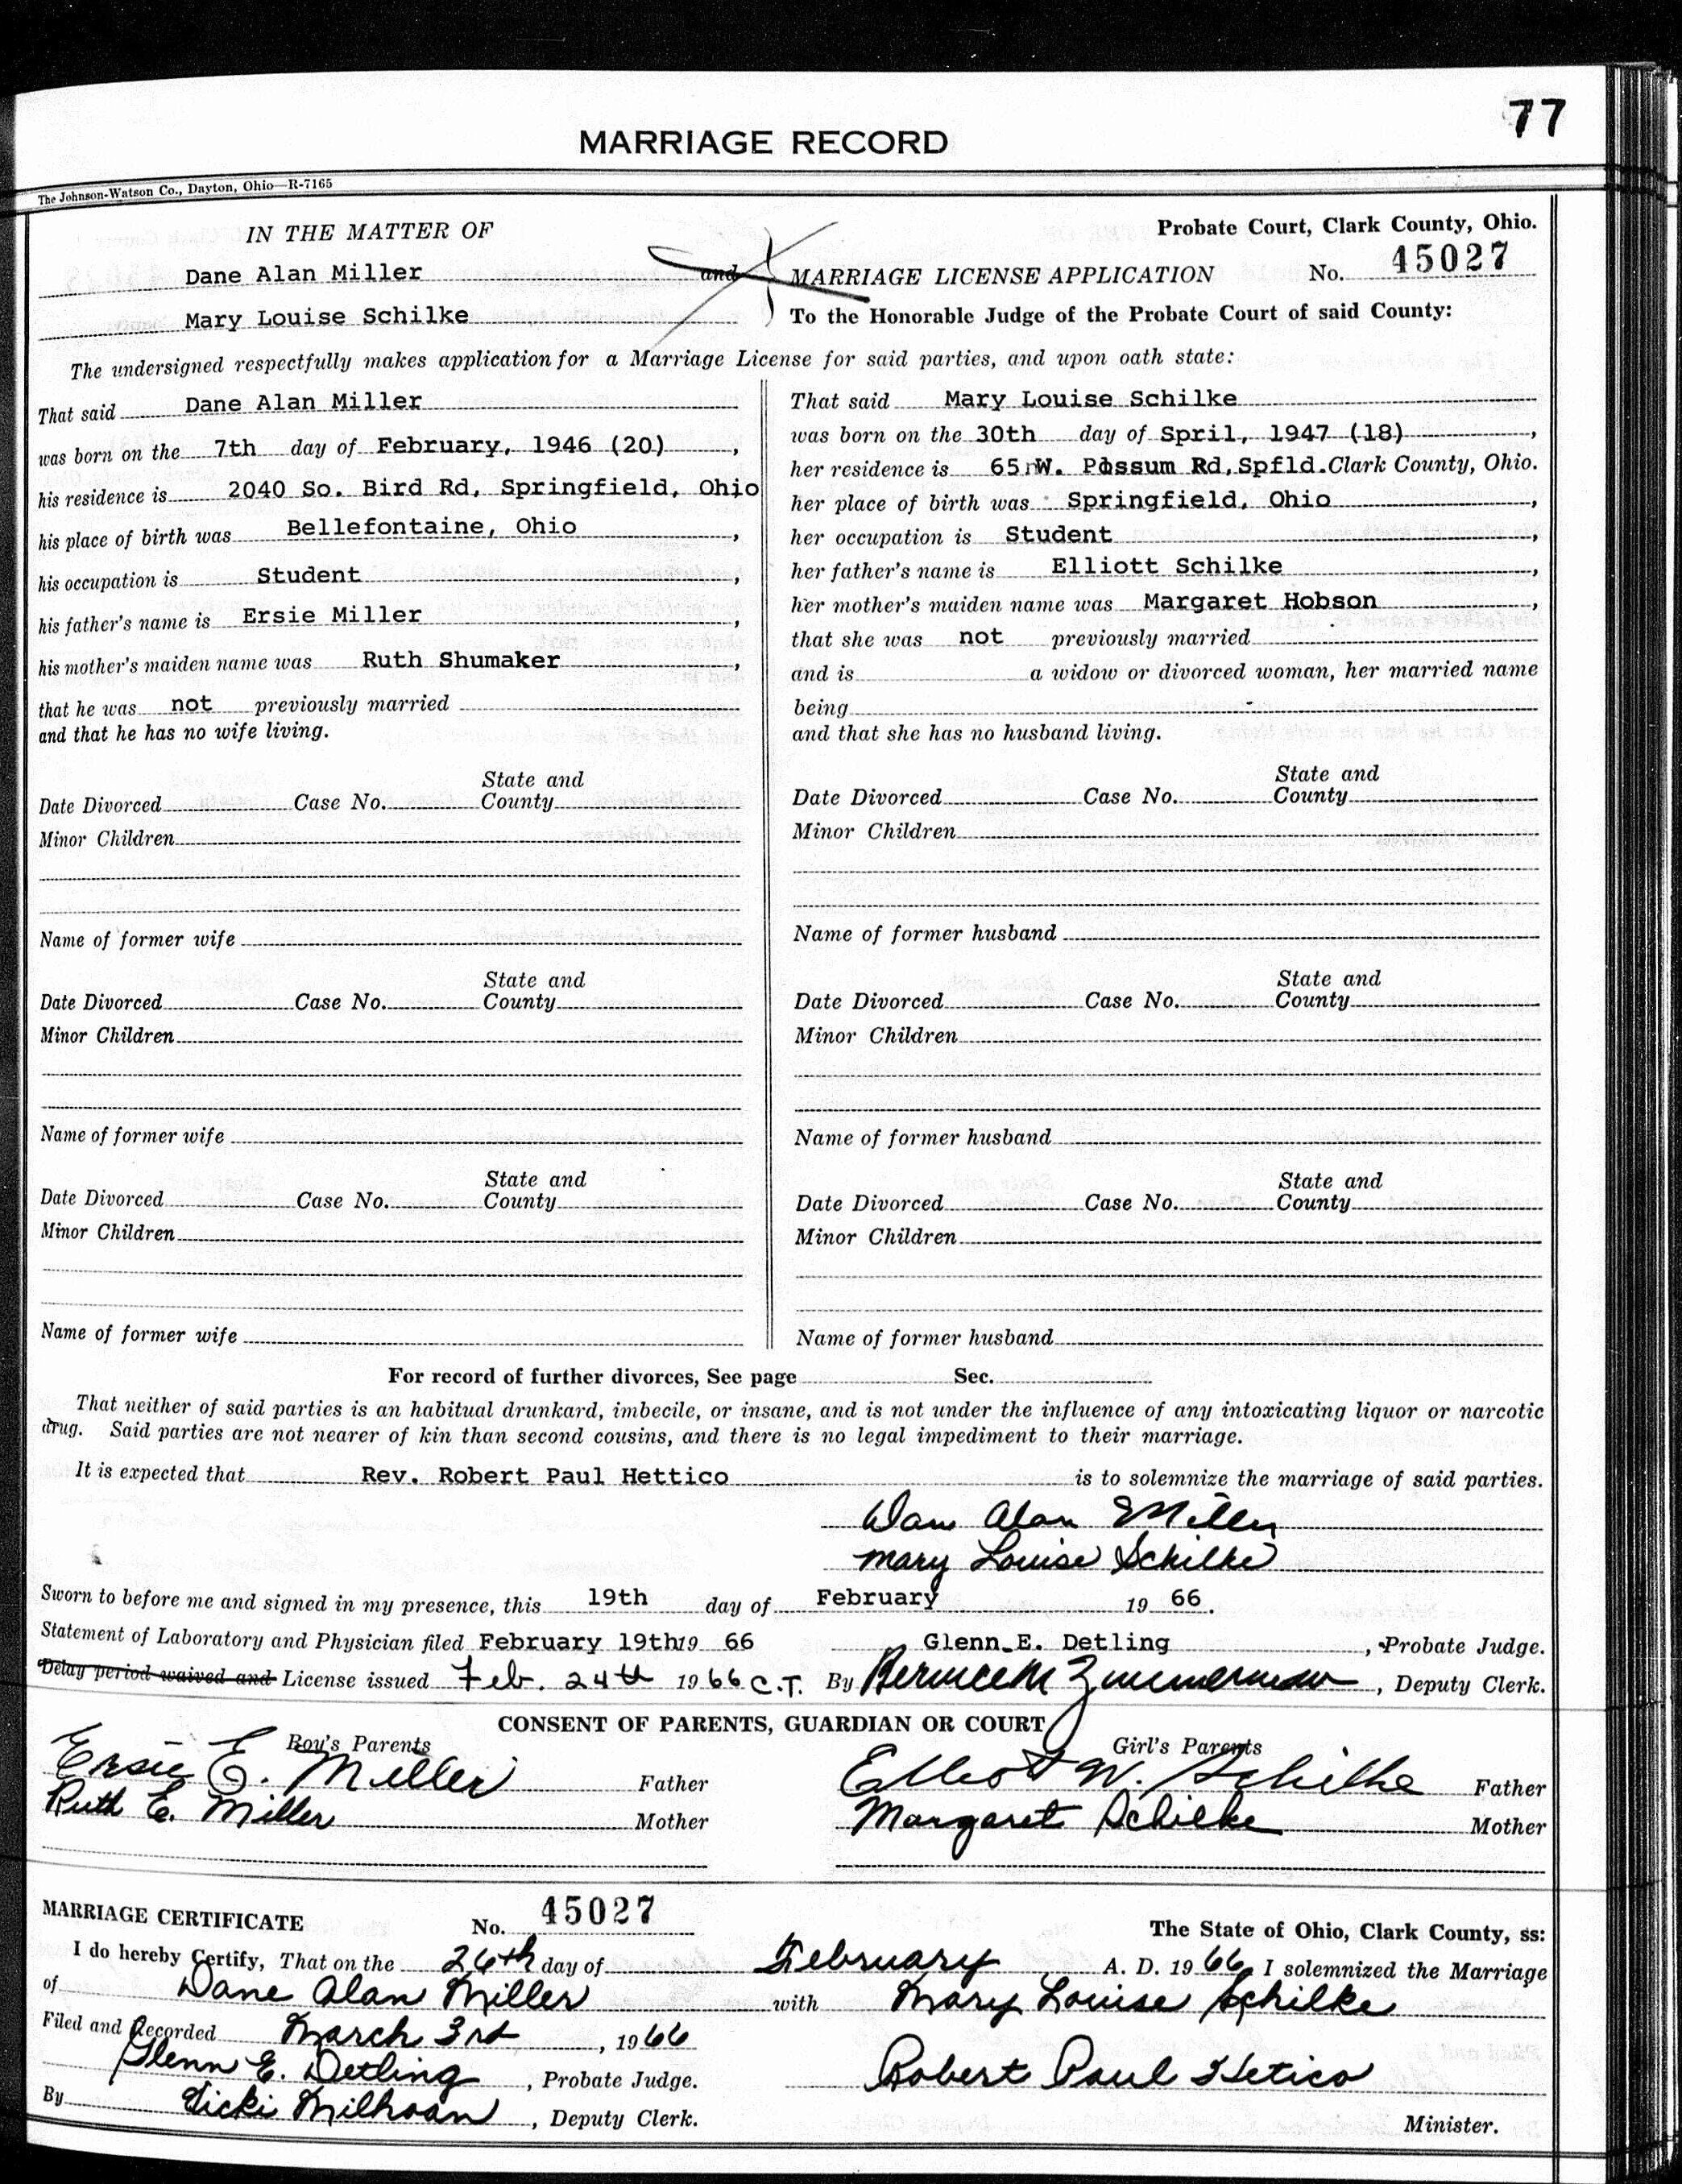 77
MARRIAGE RECORD
The Johnson-Watson Co., Dayton, Ohio—R-7165
IN THE MATTER OF
Dane Alan Miller and
Mary Louise Schilke
Probate Court, Clark County, Ohio.
MARRIAGE LICENSE APPLICATION No. 45027
To the Honorable Judge of the Probate Court of said County:
The undersigned respectfully makes application for a Marriage License for said parties, and upon oath state:
That said Dane Alan Miller
was born on the 7th day of February, 1946 (20),
his residence is 2040 So. Bird Rd, Springfield, Ohio
his place of birth was Bellefontaine, Ohio,
his occupation is Student,
his father's name is Ersie Miller,
his mother's maiden name was Ruth Shumaker,
that he was not previously married
and that he has no wife living.
Date Divorced Case No. State and County
Minor Children
Name of former wife
Date Divorced Case No. State and County
Minor Children
Name of former wife
Date Divorced Case No. State and County
Minor Children
Name of former wife
That said Mary Louise Schilke
was born on the 30th day of Spril, 1947 (18),
her residence is 65 W. Possum Rd,Spfld. Clark County, Ohio.
her place of birth was Springfield, Ohio,
her occupation is Student,
her father's name is Elliott Schilke,
her mother's maiden name was Margaret Hobson,
that she was not previously married
and is a widow or divorced woman, her married name
being
and that she has no husband living.
Date Divorced Case No. State and County
Minor Children
Name of former husband
Date Divorced Case No. State and County
Minor Children
Name of former husband
Date Divorced Case No. State and County
Minor Children
Name of former husband
For record of further divorces, See page Sec.
That neither of said parties is an habitual drunkard, imbecile, or insane, and is not under the influence of any intoxicating liquor or narcotic
drug. Said parties are not nearer of kin than second cousins, and there is no legal impediment to their marriage.
It is expected that Rev. Robert Paul Hettico is to solemnize the marriage of said parties.
Dane Alan Miller
Mary Louise Schilke
Sworn to before me and signed in my presence, this 19th day of February 19 66.
Statement of Laboratory and Physician filed February 19th 19 66 Glenn E. Detling, Probate Judge.
Delay period waived and License issued Feb. 24th 1966 C.T. By Bernice M Zimmerman, Deputy Clerk.
CONSENT OF PARENTS, GUARDIAN OR COURT
Boy's Parents Girl's Parents
Ersie E. Miller Father Elliott W. Schilke Father
Ruth E. Miller Mother Margaret Schilke Mother
MARRIAGE CERTIFICATE No. 45027 The State of Ohio, Clark County, ss:
I do hereby Certify, That on the 26th day of February A. D. 1966, I solemnized the Marriage
of Dane Alan Miller with Mary Louise Schilke
Filed and Recorded March 3rd, 1966
Glenn E. Detling, Probate Judge. Robert Paul Hetico
By Vicki Milhoan, Deputy Clerk. Minister.